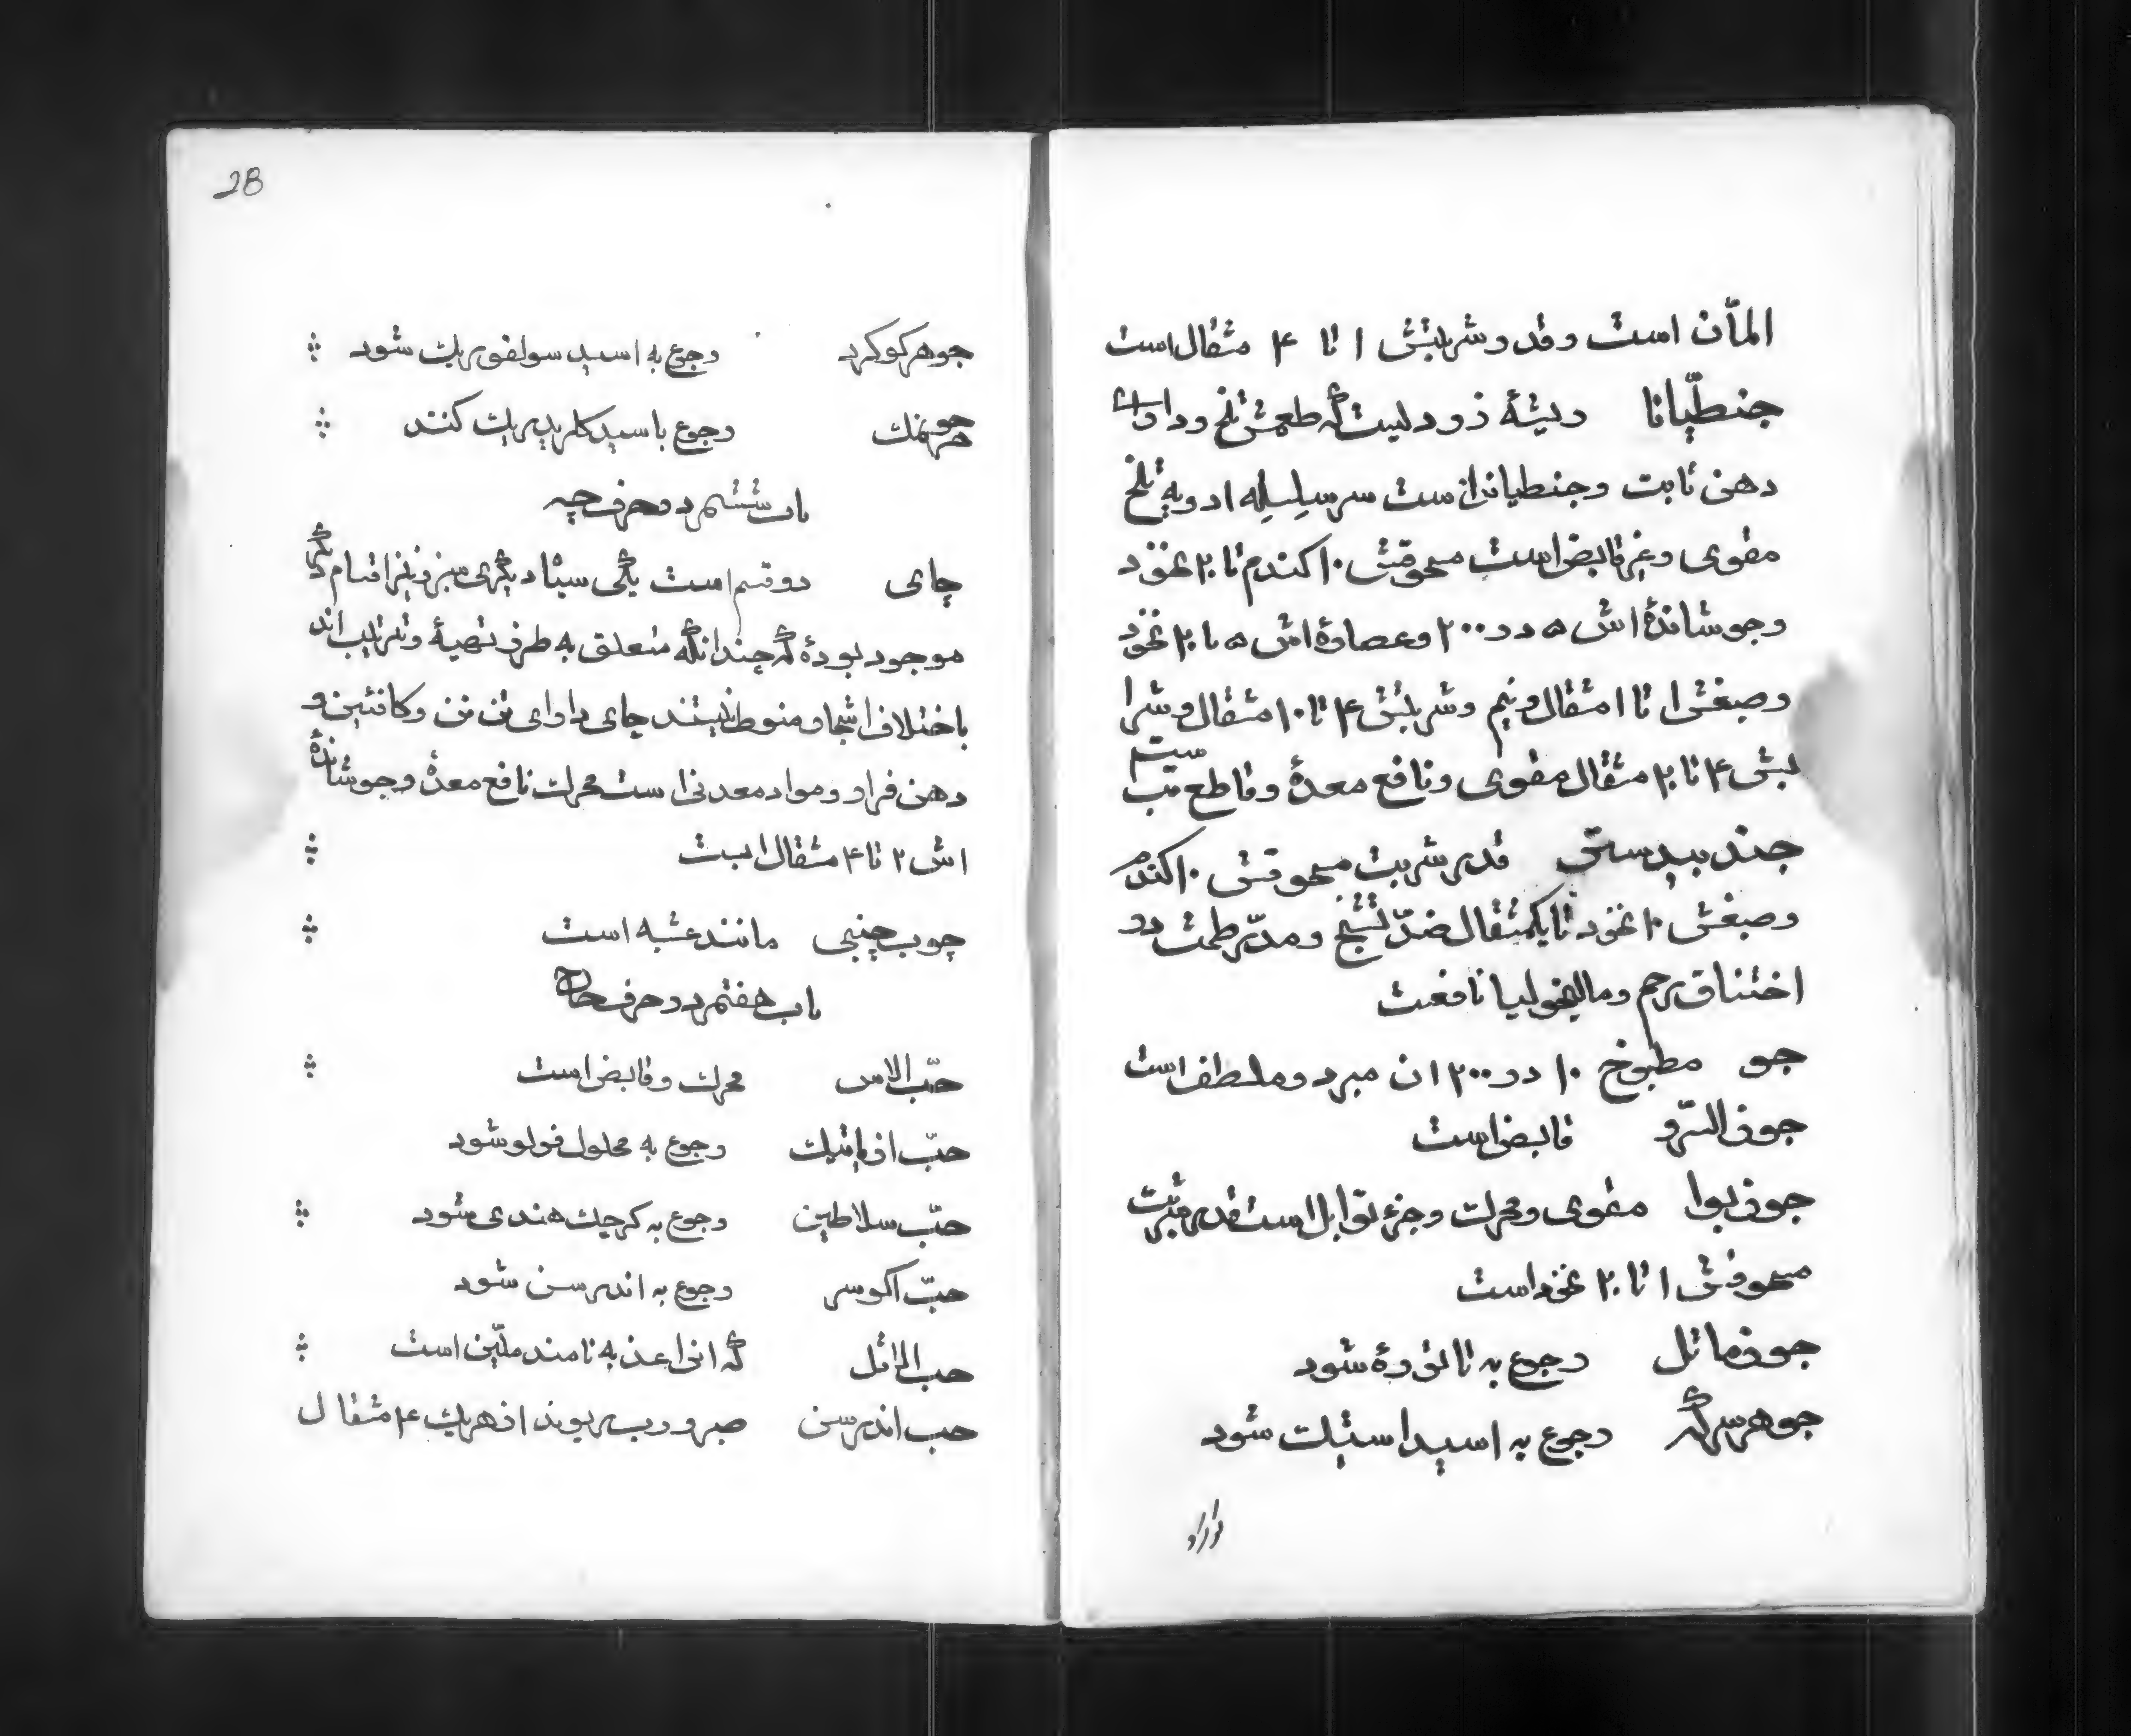 المآن است و قدر شربتش ۱ تا ۴ مثقال است
جنطّیانا ریشهٔ زردیست که طعمش تلخ و دارای
دهن ثابت و جنطیاندانست سرسلسله ادویه تلخ
مقوی و غیر قابض است مسحوقش ۱۰ کندم تا ۲۰ نخود
و جوشاندهٔ اش ۵ در ۲۰۰ و عصارهٔ اش ۵ تا ۲۰ نخود
و صبغش ۱ تا ۱ مثقال و نیم و شربتش ۴ تا ۱۰ مثقال و شرا
بش ۴ تا ۲۰ مثقال مقوی و نافع معدهٔ و قاطع تب است
جند بیدستر قدر شربت مسحوقش ۱۰ کندم
و صبغش ۱۰ نخود تا یکمثقال ضدّ تشنج و مدّر طمث در
اختناق رحم و مالیخولیا نافعت
جو مطبوخ ۱۰ در ۲۰۰ ان مبرد و ملطف است
جوز السّرو قابض است
جوز بوا مقوی و محرک و جزء توابل است قدر شربت
مسحوقش ۱ تا ۲۰ نخود است
جوز ماثل رجوع به تاتورهٔ شود
جوهر سرکه رجوع به اسید استیک شود
جوهر کوکرد رجوع به اسید سولفوریک شود
جوهر نمک رجوع باسید کلریدریک کنند
باب ششم در حرف چیم
چای دو قسم است یکی سیاه دیکری سبز و نیز اقسام دیکر
موجود بودهٔ که چندانکه متعلق به طرز تهیهٔ و ترتیب اند
باختلاف اشجار منوط نیستند چای دارای تن تن و کافئین و
دهن فرار و مواد معدنی است محرک نافع معدهٔ و جوشاندهٔ
اش ۲ تا ۴ مثقال است
چوب چینی مانند عشبه است
باب هفتم در حرف حاح
حبّ الاس محرک و قابض است
حبّ ازیاتیک رجوع به محلول فولو شود
حبّ سلاطین رجوع به کرچک هندی شود
حبّ اکوسر رجوع به اندرسن شود
حب الرائل که انرا عذبه نامند ملیّن است
حب اندرسن صبر و رب ریوند از هریک ۴ مثقال
28